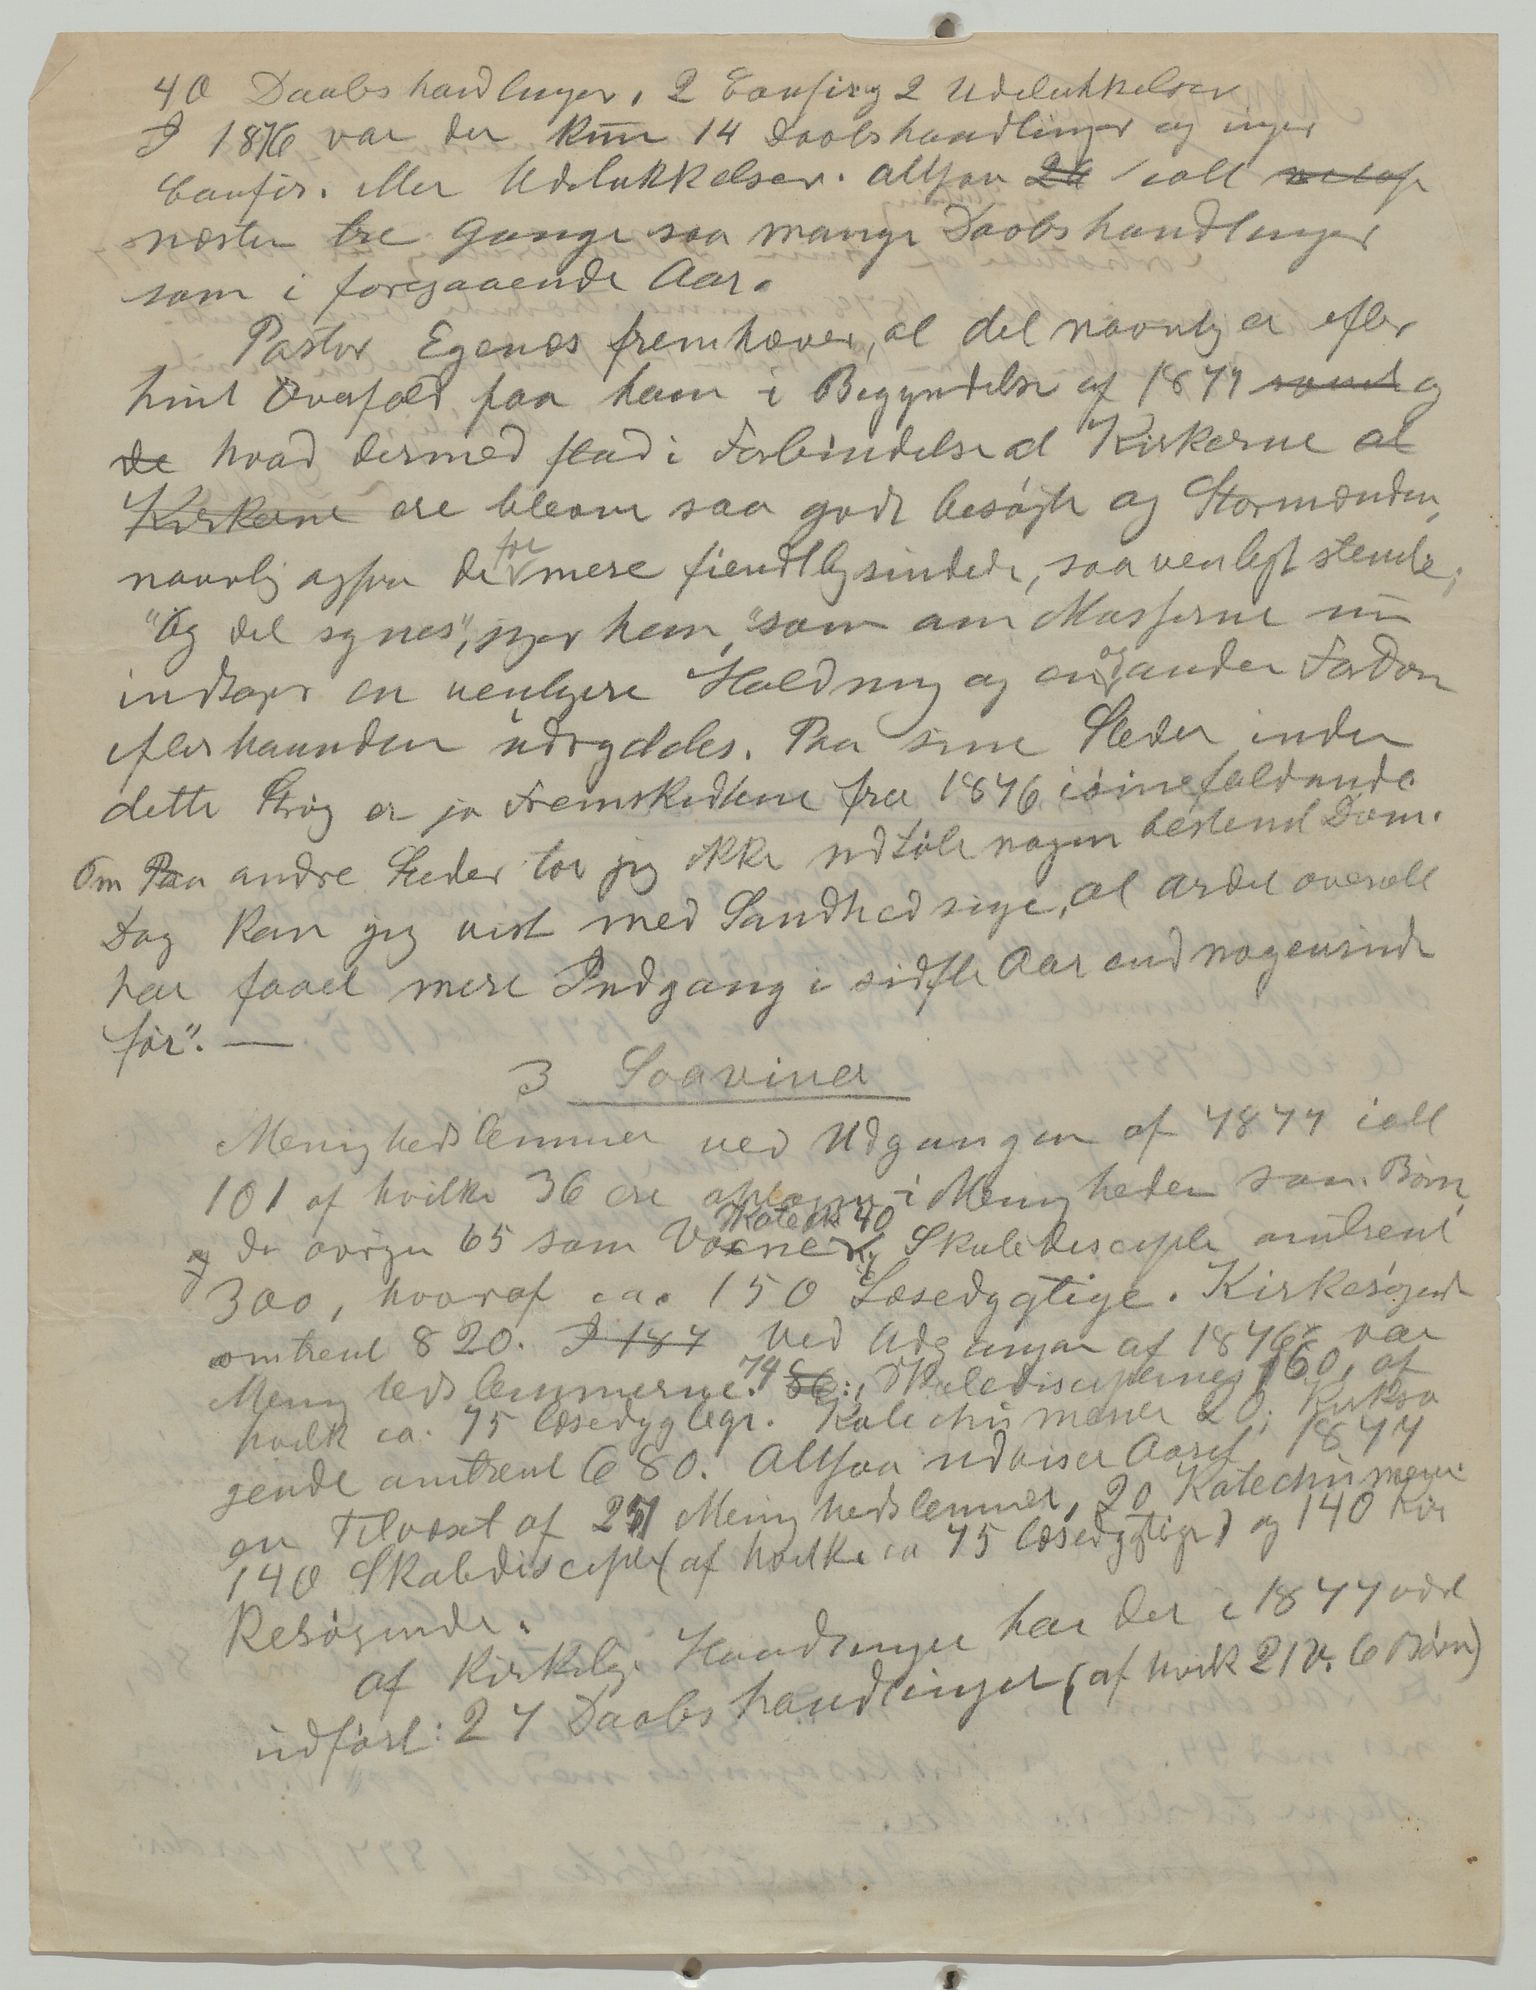 40 Daabshandlinger, 2 Confir. og 2 Udelukkelser
I 1876 var der kun 14 Daabshandlinger og ingen
Confir. eller Udelukkelser. Altsaa 26 ialt netop
næsten tre Gange saa mange Daabshandlinger
som i foregaaende Aar.
Pastor Egenæs fremhæver, at det navnlig er efter
hint Overfald paa ham i Begyndelse af 1877 samt og
de hvad dermed stod i Forbindelse at Kirkerne at
Kirkerne ere blevne saa godt besøgte og Stormænden,
navnlig ogsaa de før mere fiendtligsindede, saa venligt stemte;
"Og det synes", siger han, "som om Masserne nu
indtager en venligere Holdning og en og anden Fordom
efterhaanden udryddes. Paa sine Steder inden
dette Strøg er jo Fremskridtene fra 1876 iøinefaldende.
Om Paa andre Steder tør jeg ikke udtale nogen bestemt Dom.
Dog kan jeg vist med Sandhed sige, at Ordet overalt
har faaet mere Indgang i sidste Aar end nogensinde
før". —
3 Soavina
Menighedslemmer ved Udgangen af 1877 ialt
101 af hvilke 36 ere optagne i Menigheden som Børn,
og de øvrige 65 som Voxne, Katech. 40 Skoledisciple omtrent
300, hvoraf ca. 150 Læsedygtige. Kirkesøgende
omtrent 820. I 187 Ved Udgangen af 1876 var
Menighedslemmerne 74 Skoledisciplernes 160, af
hvilk ca. 75 læsedygtige. Katechumener 20, Kirkesø
gende omtrent 680. Altsaa udviser Aaret 1877
en Tilvæxt af 27 Menighedslemmer, 20 Katechumener
140 Skoledisciple (af hvilke ca 75 læsedygtige) og 140 Kir
kesøgende.
af kirkelige Handlinger har der i 1877 vært
udført: 27 Daabshandlinger (af hvilk 21 V. 6 Børn)